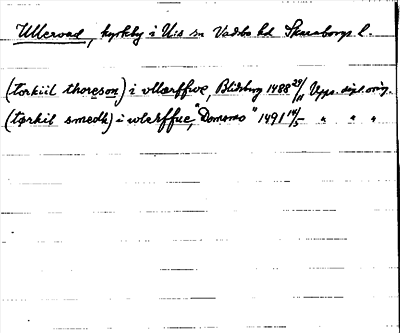 Ullervad, kyrkby i U:s sn Vadsbo hd Skaraborgs l.
(torkiil thoreson) i vllærffwe, Blidsberg 1488 29/11 Upps. dipl. orig.
(tørkil smedh) i wlerffue, "Domsmo" 1491 14/5 " " "